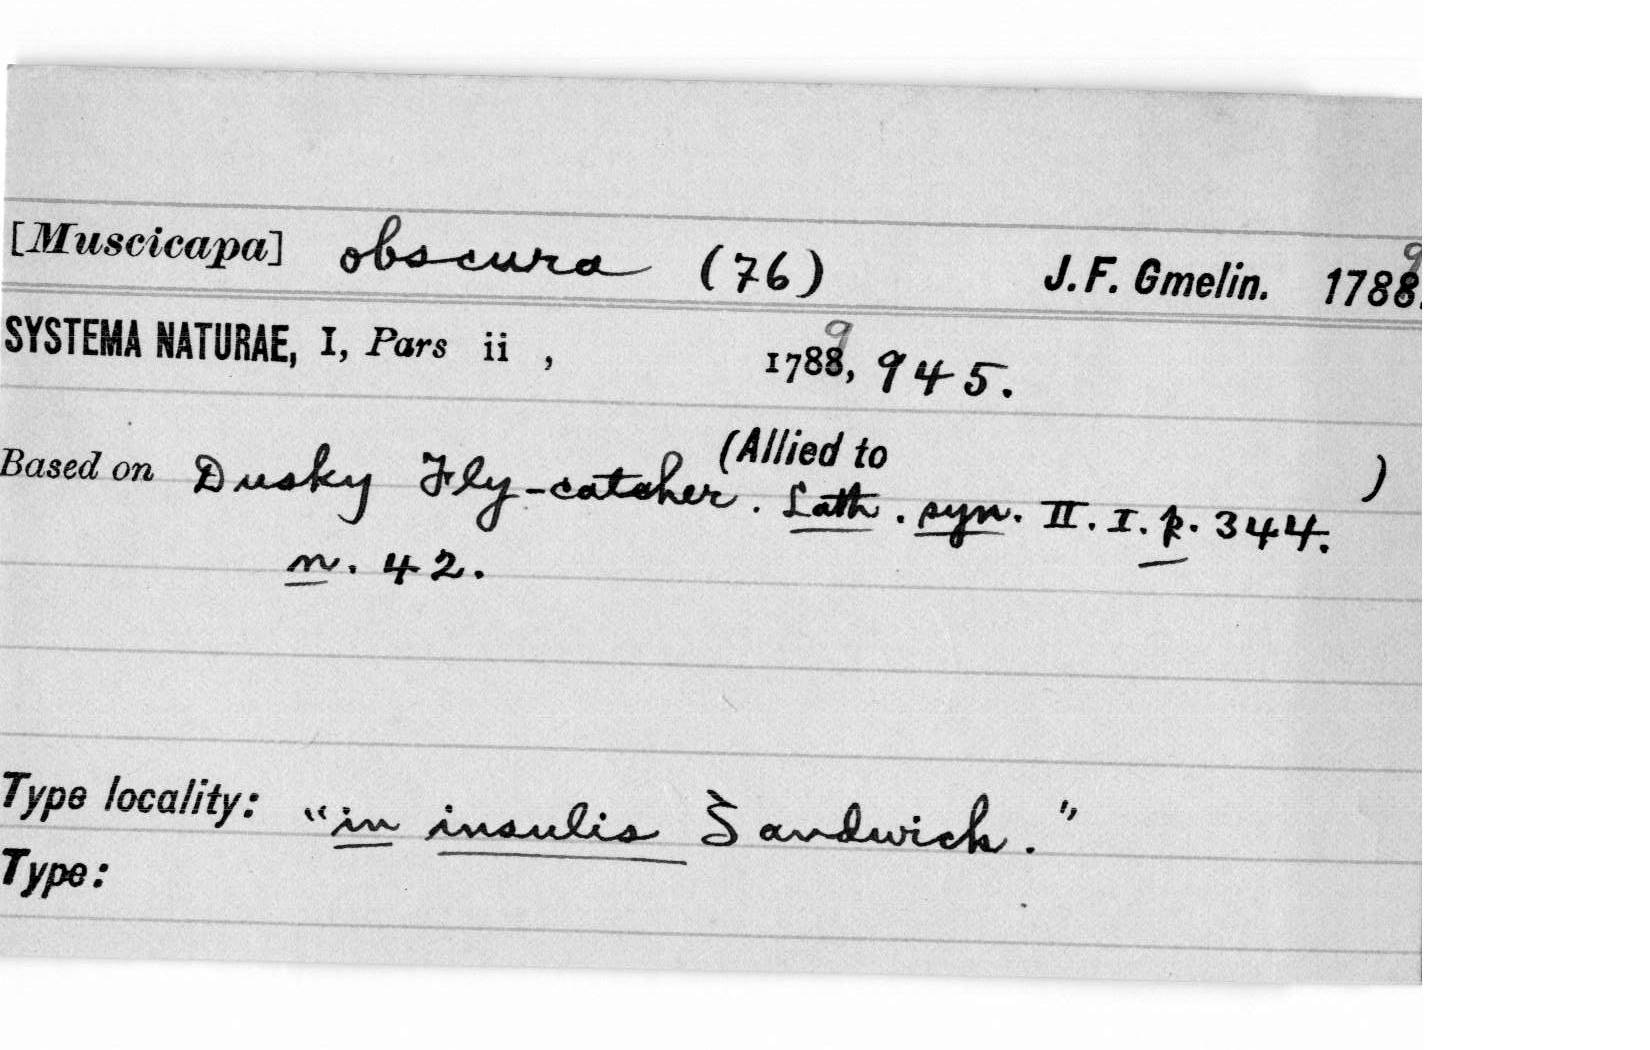 [Muscicapa] obscura (76) J. F. Gmelin. 1788.9
SYSTEMA NATURAE, I, Pars ii , 17889, 945.
(Allied to )
Based on Dusky Fly-catcher. Lath. syn. II. I. p. 344.
n. 42.
Type locality: "in insulis Sandwich."
Type: